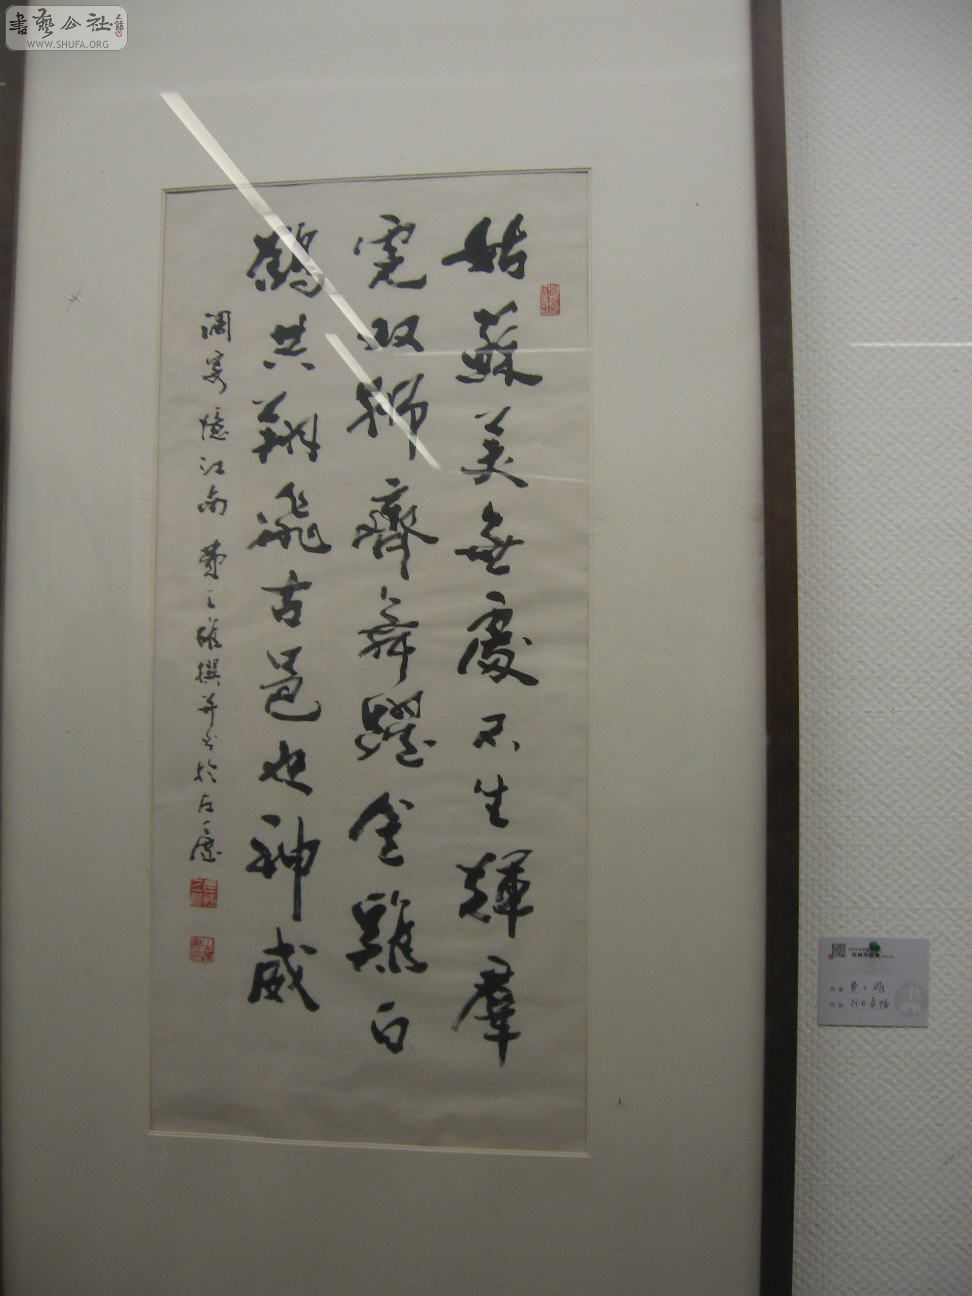 姑蘇美無處不生輝羣
虎双獅齊舞躍金雞白
鶴共翔飛古邑也神威
調寄憶江南 費之雄撰并书於古
書藝公社
WWW.SHUFA.ORG
作者 費之雄